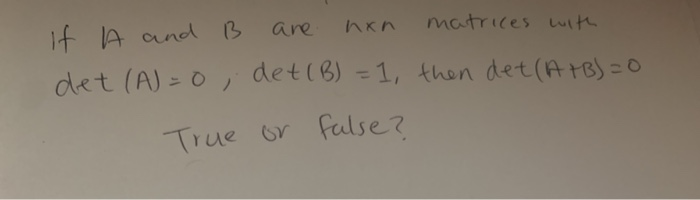 If A and B are nxn matrices with
det (A) = 0, det(B) = 1, then det(A+B)=0
True or false?